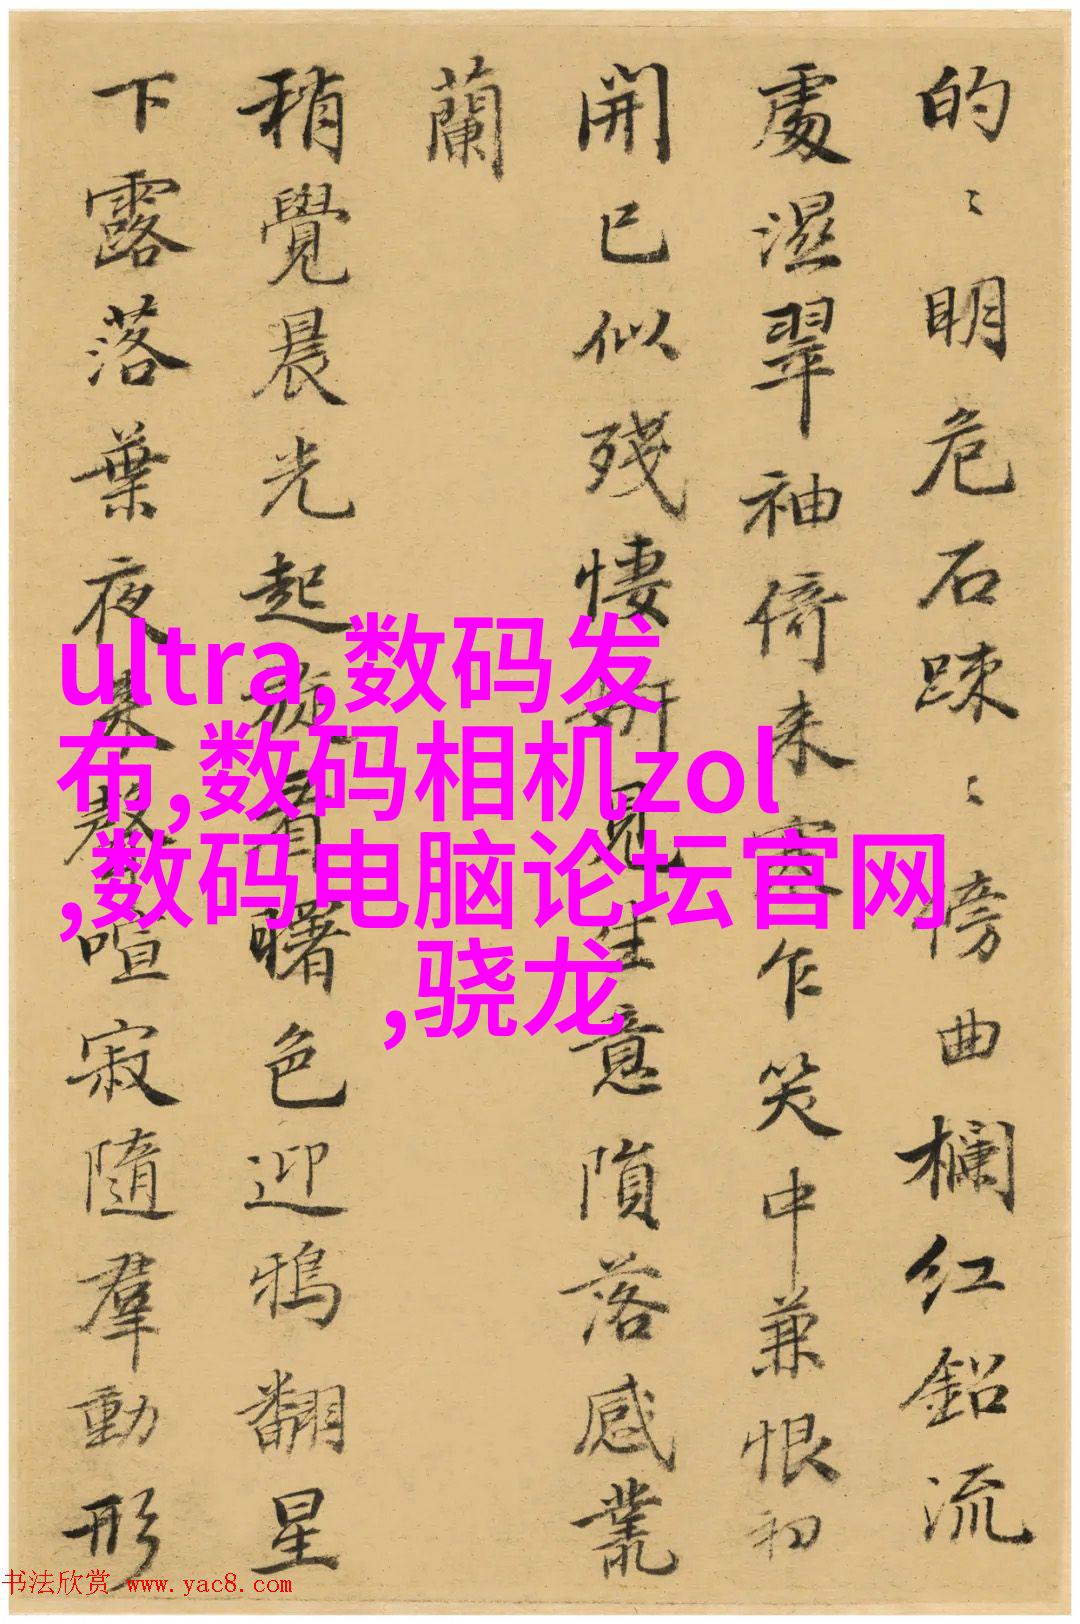 的〻明危石踈〻傍曲欄红鉛流
處濕翠袖倚来寒乍笑中兼恨初
開已似残悽妍晃生意隕落感叢
蘭
稍覺晨光起旋看曙色迎鴉翻星
下露落葉夜来聲喧寂隨羣動形
ultra,数码发
布,数码相机zol
,数码电脑论坛官网
,骁龙
书法欣赏 www.yac8.com